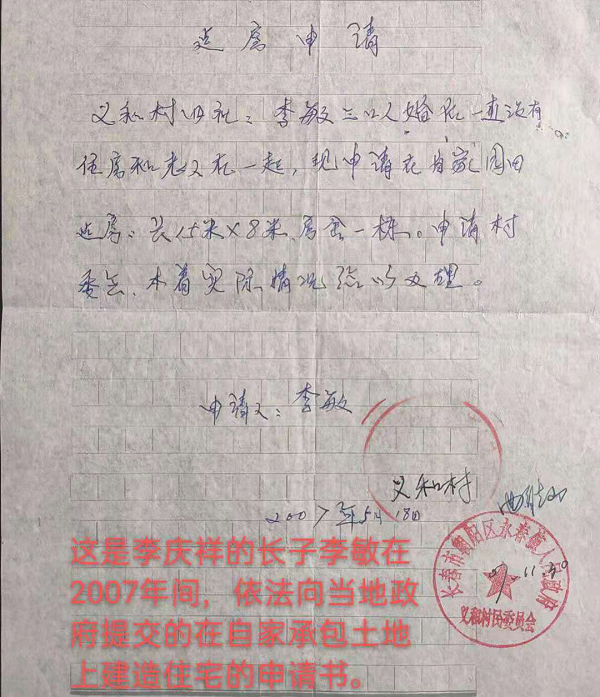 造房申请
义和村四社：李敏三口人婚后一直没有
住房和老父在一起，现申请在自家园田
造房：长15米×8米.房舍一栋。申请村
委会.本着实际情况给以办理。
申请人：李敏
义和村
2007年5月18日
11.30
长春市朝阳区永春镇人民政府
义和村民委员会
这是李庆祥的长子李敏在
2007年间，依法向当地政
府提交的在自家承包土地
上建造住宅的申请书。